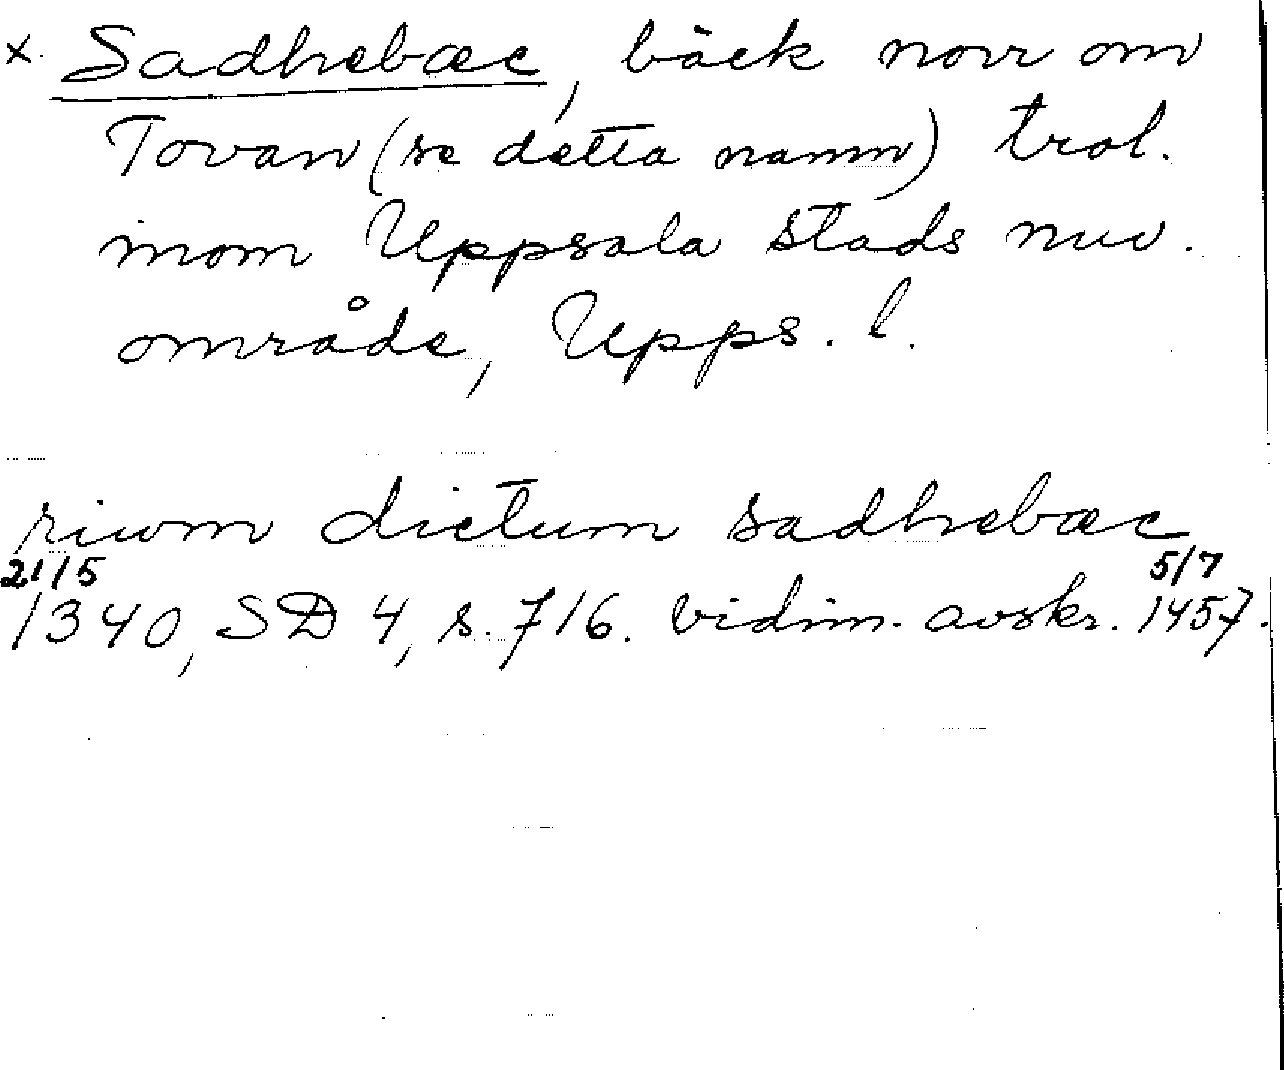 x. Sadhebæc, bäck norr om
Tovan (se detta namn) trol.
inom Uppsala stads nuv.
område, Upps. l.
riwm dictum sadhebæc
21/5 5/7
1340, SD 4, s. 716. vidim. avskr. 1457.